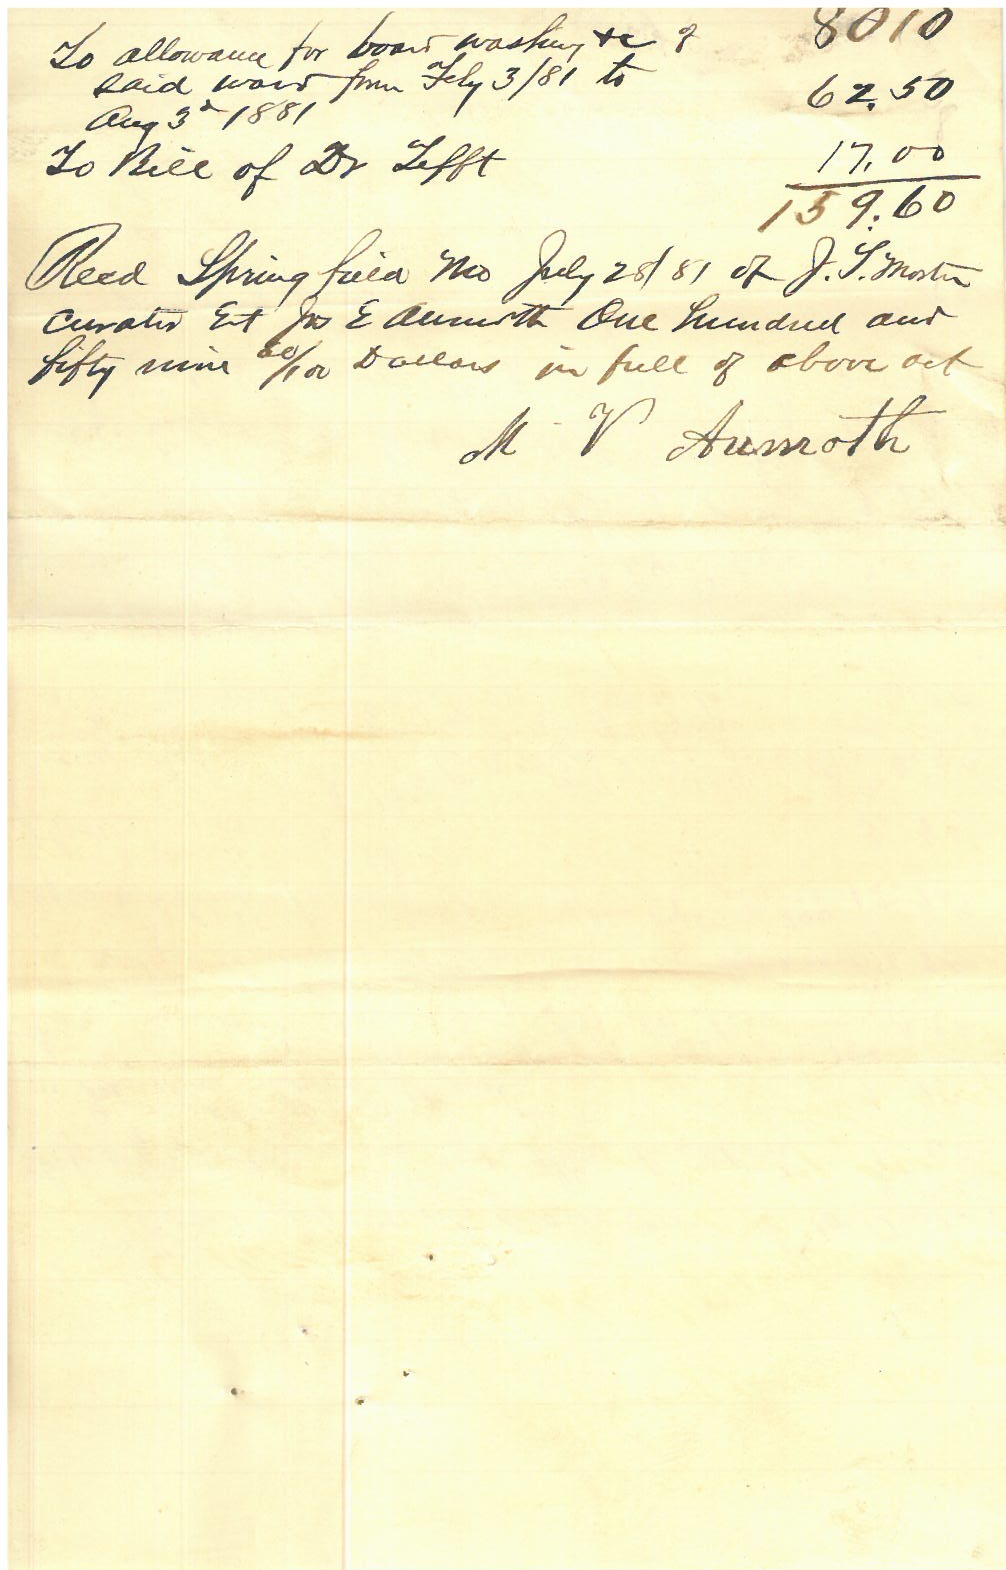 8010
To allowance for board washing &c of
said ward from Feby 3/81 to 62.50
Aug 3d 1881
To Bill of Dr Tefft 17.00
159.60
Recd Springfield Mo July 28/81 of J. T. Morton
curator Est Jos E Aumoth One hundred and
fifty nine 60/100 Dollars in full of above act
M V Aumoth